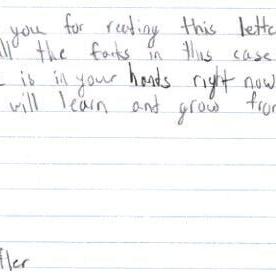 you for reading this lette
ll the facts in this case
is in your hands right now
will learn and grow from
fler